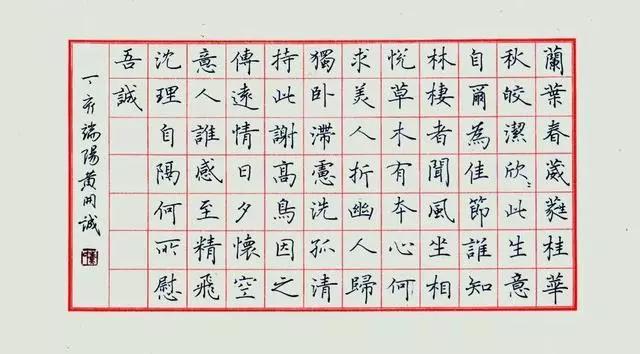 蘭葉春葳蕤桂華
秋皎潔欣〻此生意
自爾為佳節誰知
林棲者聞風坐相
悅草木有本心何
求美人折幽人歸
獨卧滯慮洗孤清
持此謝高鳥因之
傳遠情日夕懷空
意人誰感至精飛
沈理自隔何所慰
吾誠
丁亥端陽黄開誠